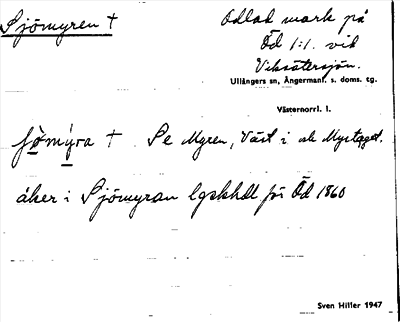 Sjömyren †
Odlad mark på
Öd 1:1. vid
Viksätersjön.
Ullångers sn, Ångermanl. s. doms. tg.
Västernorrl. l.
fø̀mýra † Se Myren, Väst i
åker i Sjömyran lgskhdl för Öd 1860
Sven Hiller 1947